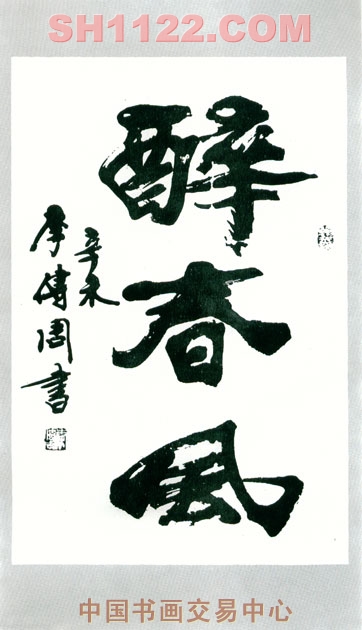 SH1122.COM
醉春风
辛未
李传周书
中国书画交易中心